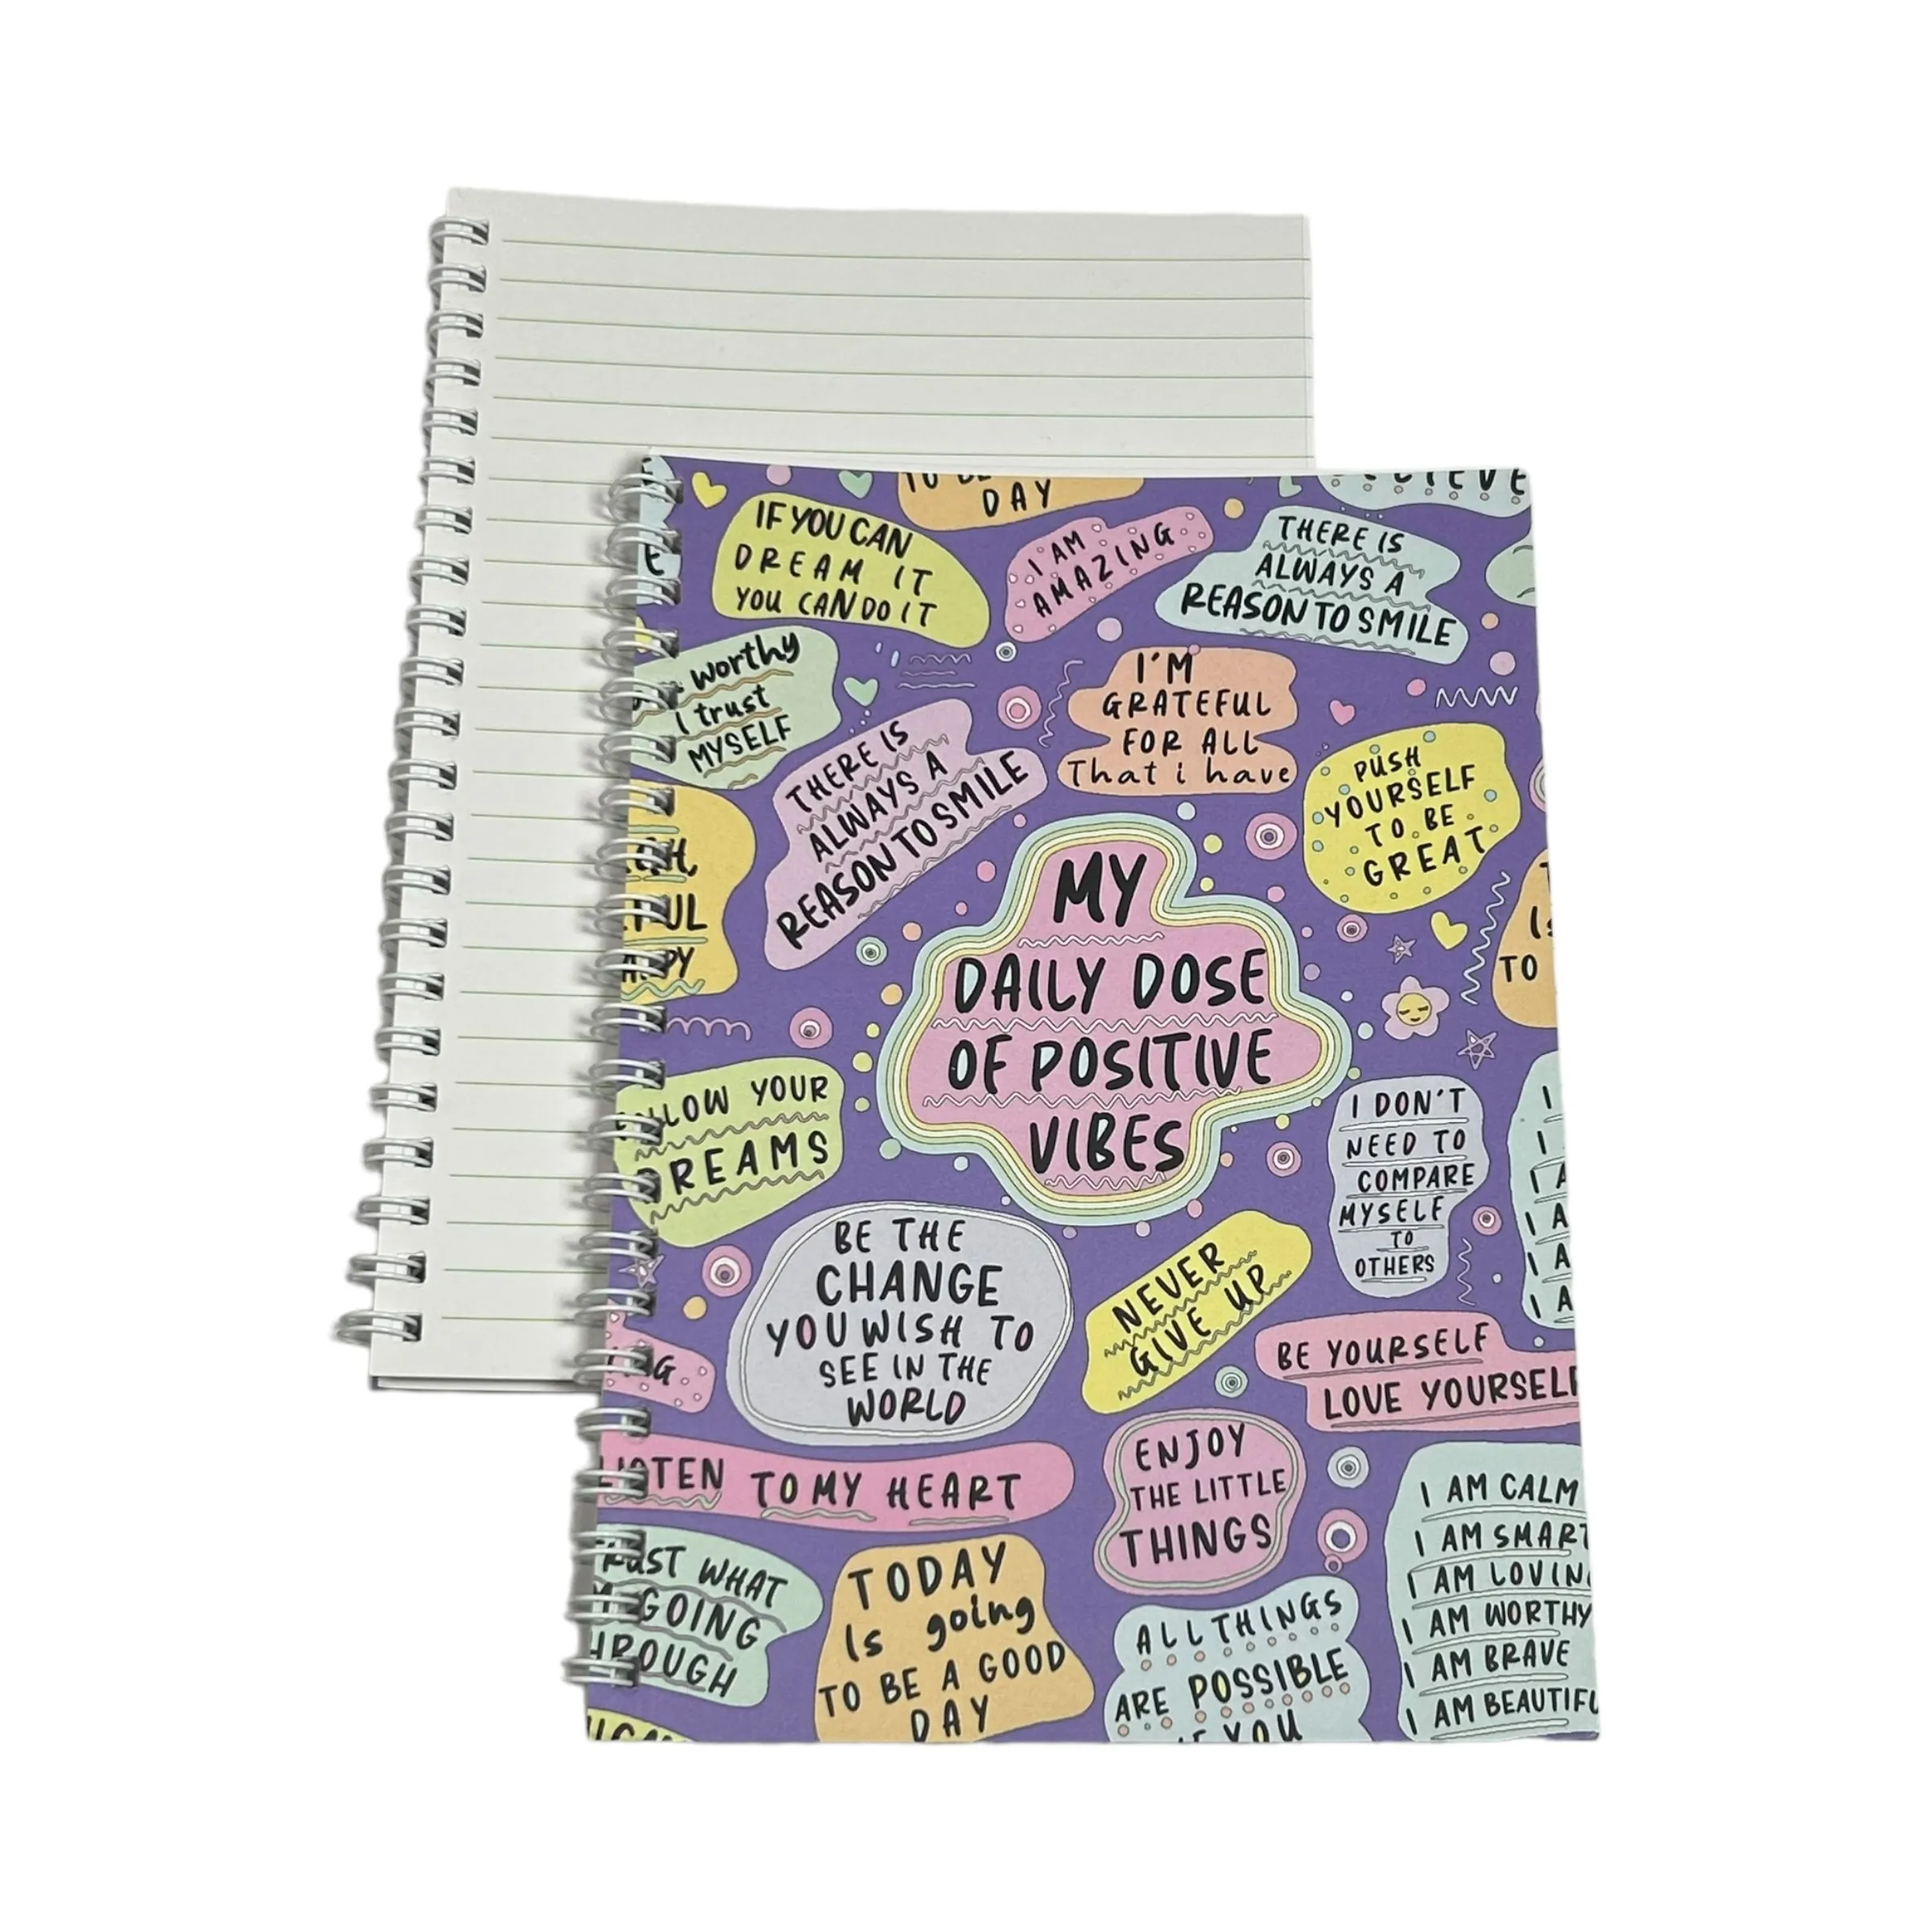 TO BE
DAY
IF YOU CAN
DREAM IT
YOU CAN DO IT
I AM
AMAZING
THERE IS
ALWAYS A
REASON TO SMILE
worthy
I trust
MYSELF
THERE IS
ALWAYS A
REASON TO SMILE
I'M
GRATEFUL
FOR ALL
That i have
PUSH
YOURSELF
TO BE
GREAT
MY
DAILY DOSE
OF POSITIVE
VIBES
TO
YOUR
DREAMS
I DON'T
NEED TO
COMPARE
MYSELF
TO
OTHERS
BE THE
CHANGE
YOU WISH TO
SEE IN THE
WORLD
NEVER
GIVE UP
BE YOURSELF
LOVE YOURSELF
LISTEN TO MY HEART
ENJOY
THE LITTLE
THINGS
TRUST WHAT
GOING
THROUGH
TODAY
Is going
TO BE A GOOD
DAY
ALL THINGS
ARE POSSIBLE
IF YOU
I AM CALM
I AM SMART
I AM LOVIN
I AM WORTHY
I AM BRAVE
I AM BEAUTIFU